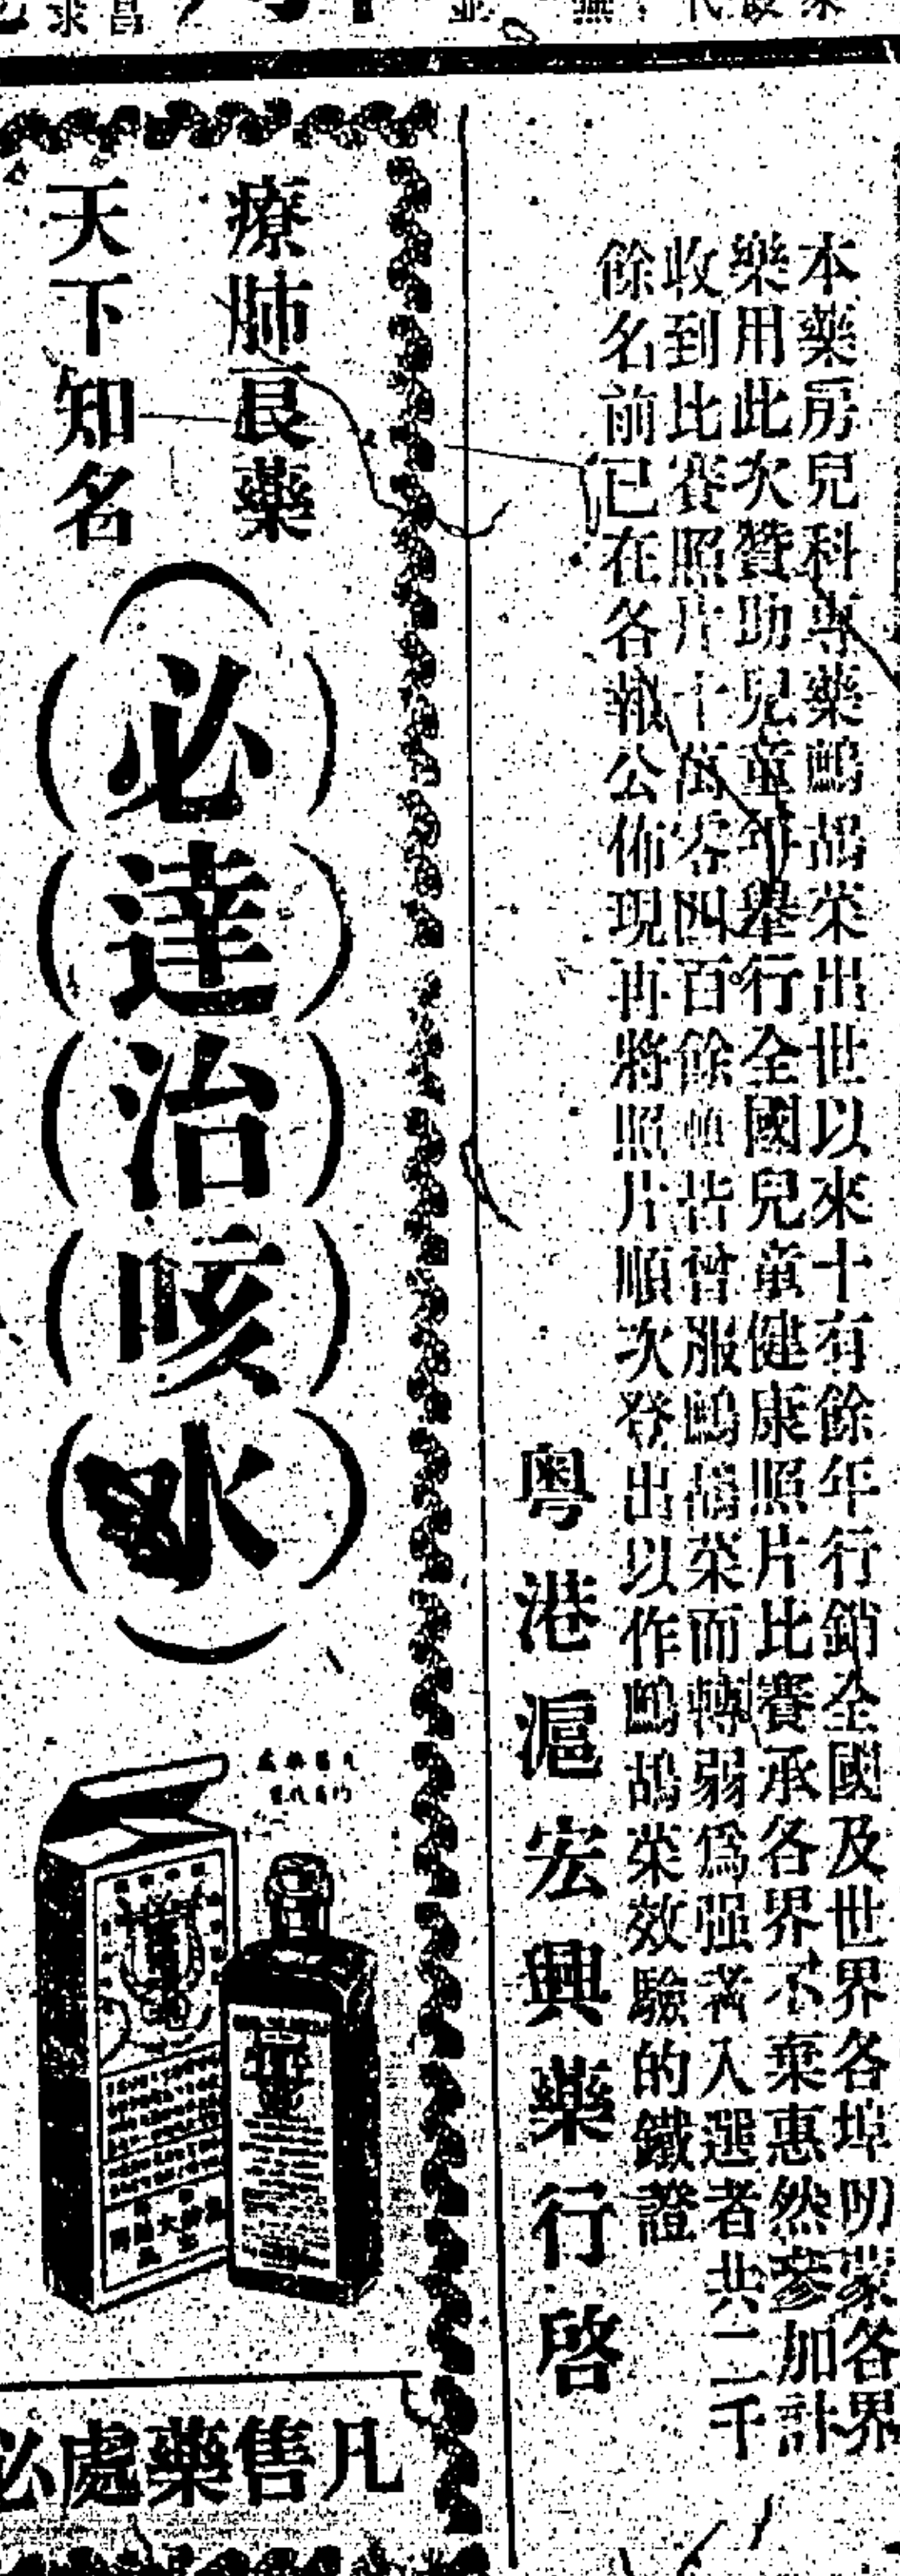 本藥房兒科專藥鷓鴣菜出世以來十有餘年行銷全國及世界各埠叨蒙各界
樂用此次贊助兒童年舉行全國兒童健康照片比賽承各界不棄惠然參加計
收到比賽照片十萬零四百餘幀皆曾服鷓鴣菜而轉弱爲强者入選者共二千
餘名前已在各報公佈現再將照片順次登出以作鷓鴣菜效驗的鐵證
粵港滬宏興藥行啓
療肺良藥
天下知名
(必)(達)(治)(咳)(水)
凡售藥處必